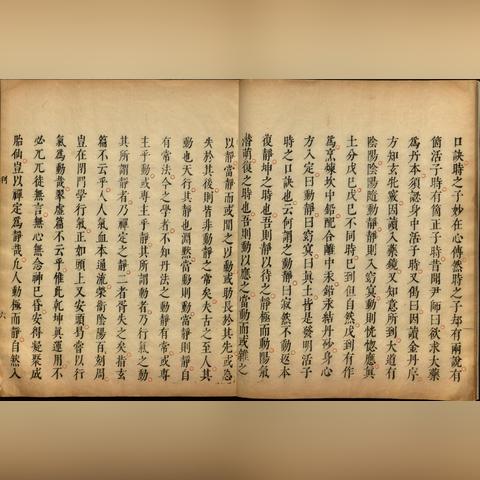 口訣時之子妙在心傳然時之子却有兩說有
箇活子時有箇正子時昔聞尹師曰欲求大藥
為丹本須認身中活子時又偈曰因讀金丹序
方知玄牝竅因讀入藥鏡又知意所到大道有
陰陽陰陽隨動靜靜則入窈冥動則恍惚應真
土分戊己戊己不同時己到但自然戊到有作
為烹煉坎中鉛配合離中汞鉛汞結丹砂身心
方入定曰動靜曰窈冥曰真土皆是發明活子
時之口訣也云何謂之動靜曰寂然不動返本
復靜坤之時也吾則靜以待之靜極而動陽氣
潛萌復之時也吾則動以應之當動而或雜之
以靜當靜而或間之以動或助長於其先或忽
失於其後則皆非動靜之常矣夫古之至人其
動也天行其靜也淵默當動則動當靜則靜自
有常法今之學者不知丹法之動靜有常或專
主乎動或專主乎靜其所謂動者乃行氣之動
其所謂靜者乃禪定之靜二者胥失之矣指玄
篇不云乎人人氣血本通流榮衛陰陽百刻周
豈在閉門學行氣正如頭上又安頭若當以行
氣為動哉翠虛篇不云乎惟此乾坤真運用不
必兀兀徒無言無心無念神已昏安得凝聚成
胎仙豈以禪定為靜哉凡人動極而靜自然入